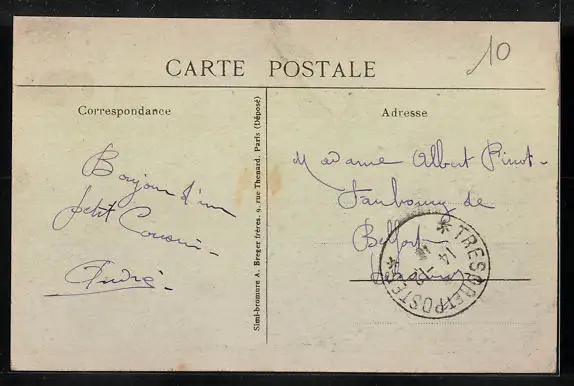 10
CARTE POSTALE
Correspondance
Adresse
Bonjour d'un
petit Cousin -
André -
Simi-bromure A. Breger frères, 9, rue Thenard, Paris (Déposé)
Madame Albert Pinot -
Faubourg de
Belfort -
* TRESOR ET POSTES *
14